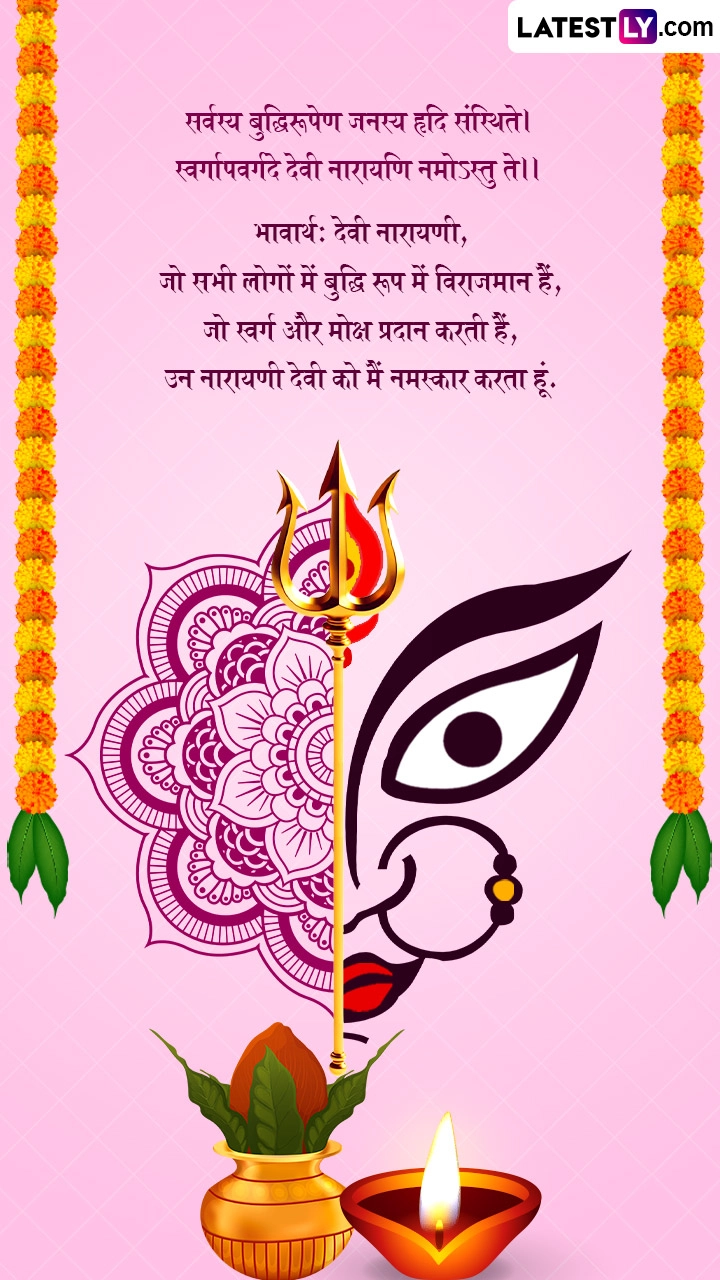 LATESTLY.com
सर्वस्य बुद्धिरूपेण जनस्य हृदि संस्थिते।
स्वर्गापवर्गदे देवी नारायणि नमोऽस्तु ते।।
भावार्थ: देवी नारायणी,
जो सभी लोगों में बुद्धि रूप में विराजमान हैं,
जो स्वर्ग और मोक्ष प्रदान करती हैं,
उन नारायणी देवी को मैं नमस्कार करता हूं.